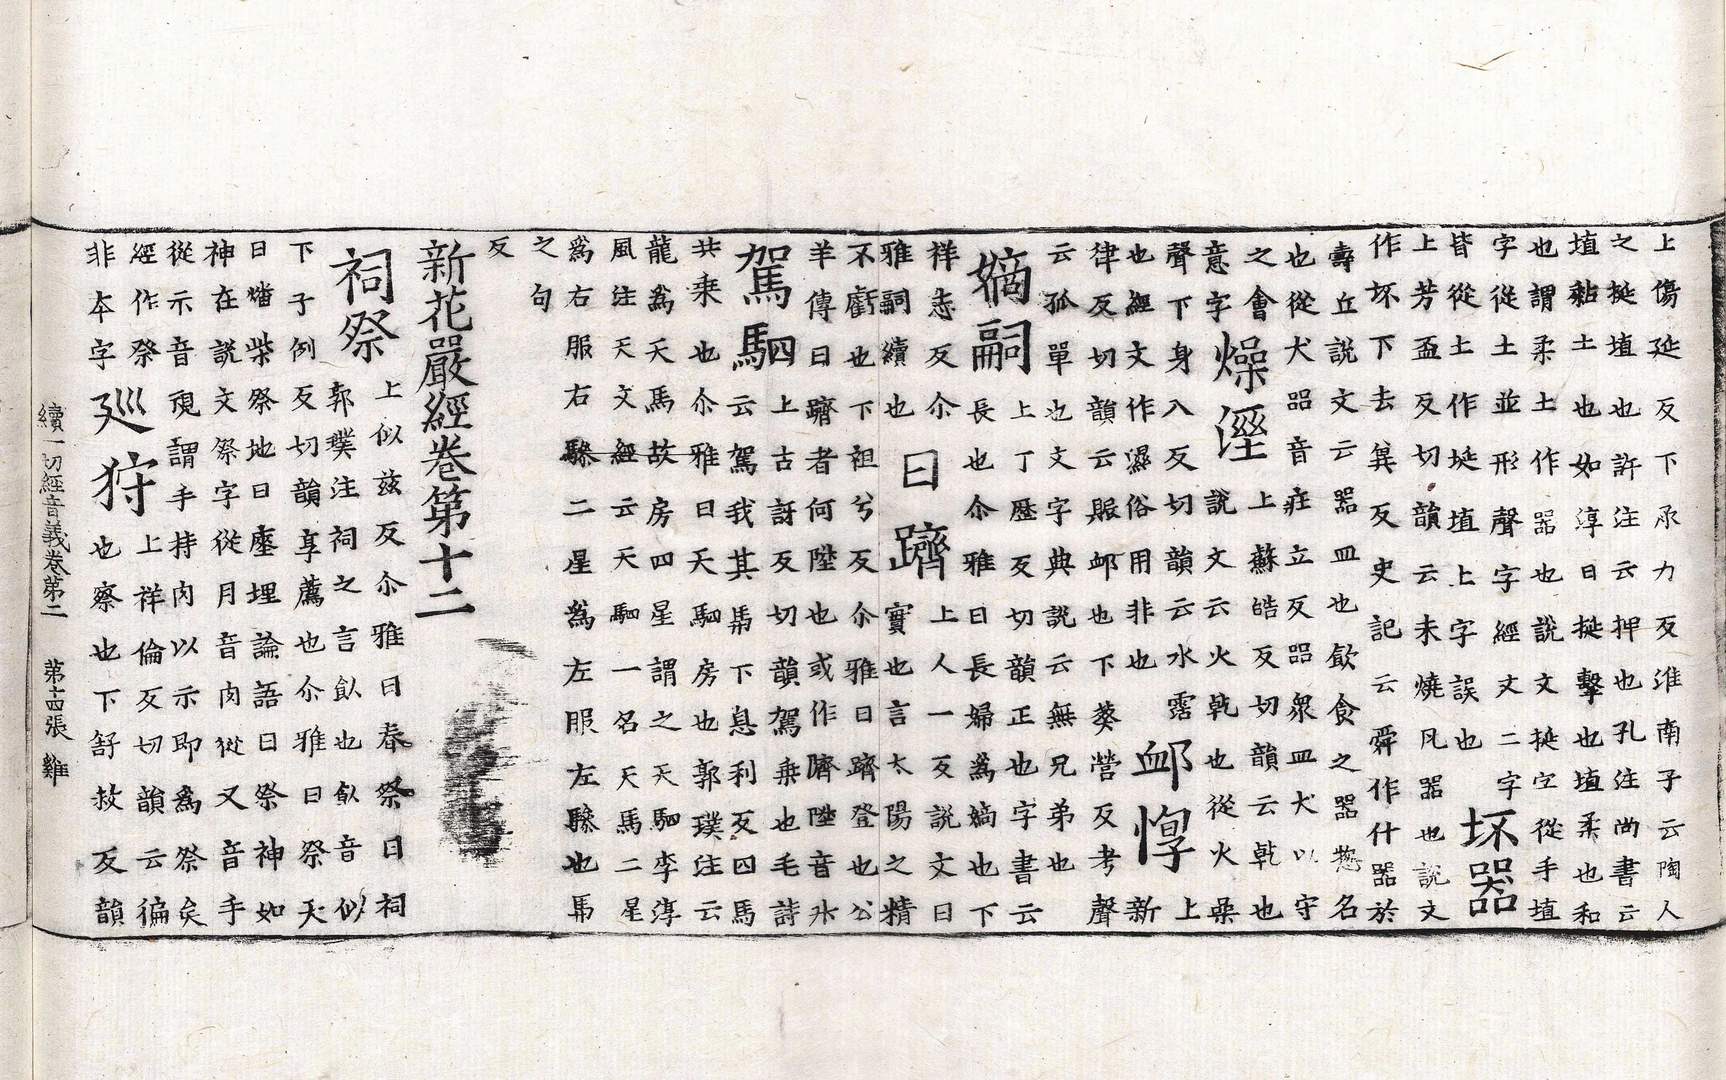 上傷延反下承力反淮南子云陶人
之挻埴也許注云押也孔注尚書云
埴黏土也如淳曰挻擊也埴柔也和
也謂柔土作器也說文挻字從手埴
字從土並形聲字經文二字
皆從土作埏埴上字誤也
坏器
上芳盃反切韻云未燒凡器也說文
作坏下去兾反史記云舜作什器於
壽丘說文云器皿也飲食之器惣名
也從犬㗊音疰立反㗊衆皿犬以守
之會
意字
燥溼
上蘇皓反切韻云乾也
說文云火乾也從火喿
聲下身入反切韻云水霑
也經文作濕俗用非也
卹惸
上
新
律反切韻云賑卹也下葵營反考聲
云孤單也文字典說云無兄弟也
嫡嗣
上丁歷反切韻正也字書云
長也尒雅曰長婦為嫡也下
祥志反尒
雅嗣續也
曰躋
上人一反說文曰
實也言太陽之精
不虧也下祖兮反尒雅曰躋登也公
羊傳曰躋者何陞也或作隮陞音升
駕駟
上古訝反切韻駕乘也毛詩
云駕我其馬下息利反四馬
共乘也尒雅曰天駟房也郭璞注云
龍為天馬故房四星謂之天駟李淳
風注天文經云天駟一名天馬二星
為右服右驂二星為左服左驂也馬
之句
反
新花嚴經卷第十二
祠祭
上似兹反尒雅曰春祭曰祠
郭璞注祠之言飤也飤音似
下子例反切韻享薦也尒雅曰祭天
曰燔柴祭地曰瘞埋論語曰祭神如
神在說文祭字從月音肉從又音手
從示音視謂手持肉以示即為祭矣
經作祭
非本字
巡狩
上祥倫反切韻云徧
也察也下舒救反韻
續一切經音義卷第二 第十四張 雞